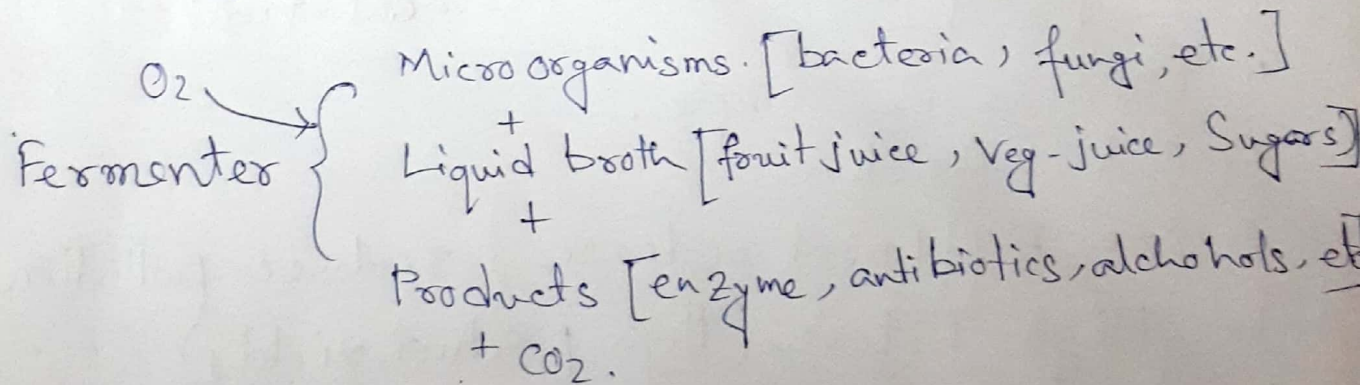 Microorganisms. [bacteria, fungi, etc.]
O2
+
Fermenter { Liquid broth [fruit juice, Veg-juice, Sugars]
+
Products [enzyme, antibiotics, alchohols, et
+ CO2.